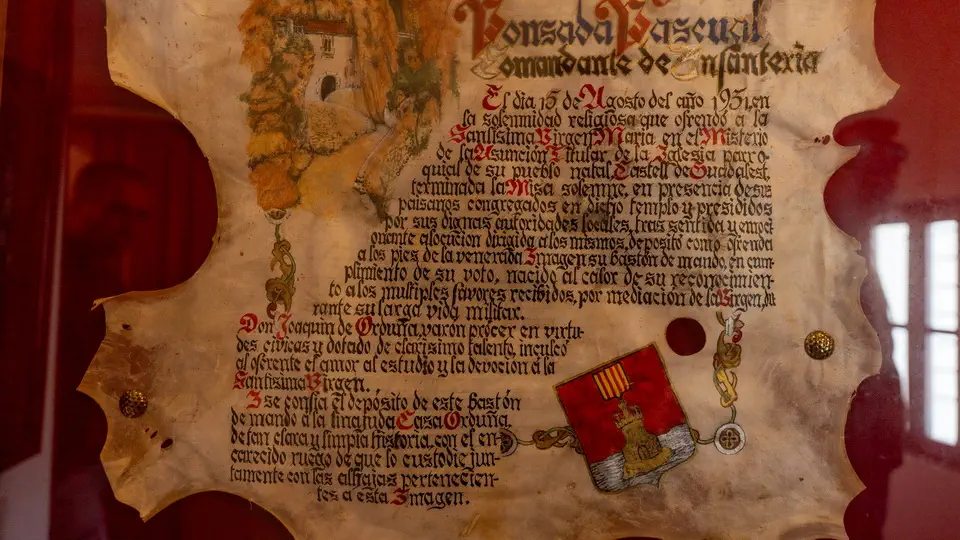 Ponsada Pascual
Comandante de Infanteria
El dia 15 de Agosto del año 1951, en
la solemnidad religiosa que ofrendó a la
Santisima Virgen Maria en el Misterio
de la Asunción Titular de la Iglesia parro-
quial de su pueblo natal, Castell de Guadalest,
terminada la Misa solemne, en presencia de sus
paisanos congregados en dicho templo y presididos
por sus dignas autoridades locales, tras sentida y emoci
onante alocución dirigida a los mismos, depositó como ofrenda
a los pies de la venerada Imagen su bastón de mando, en cum-
plimiento de su voto, nacido al calor de su reconocimien-
to a los multiples favores recibidos, por mediación de la Virgen, du
rante su larga vida militar.
Don Joaquin de Orduña, varón prócer en virtu-
des civicas y dotado de clarisimo talento, inculcó
al oferente el amor al estudio y la devoción a la
Santisima Virgen.
I se confia el depósito de este Bastón
de mando a la linajuda Casa Orduña,
de tan clara y limpia historia, con el en-
carecido ruego de que lo custodie jun-
tamente con las alhajas pertenecien-
tes a esta Imagen.